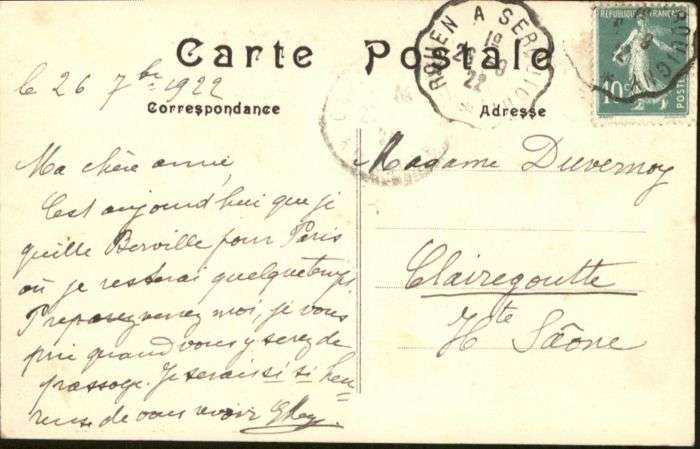 Carte Postale
Correspondance
Adresse
ROUEN A SERQUIGNY
22
RÉPUBLIQUE FRANÇAISE
10
POSTES
le 26 7bre 1922
Ma chère amie,
C'est aujourd'hui que je
quitte Berville pour Paris
où je resterai quelque temps.
Preparez venez moi, je vous
prie quand vous y serez de
passage. Je serais si si heu-
reuse de vous revoir
Madame Duvernoy
Clairegoutte
Hte Saône